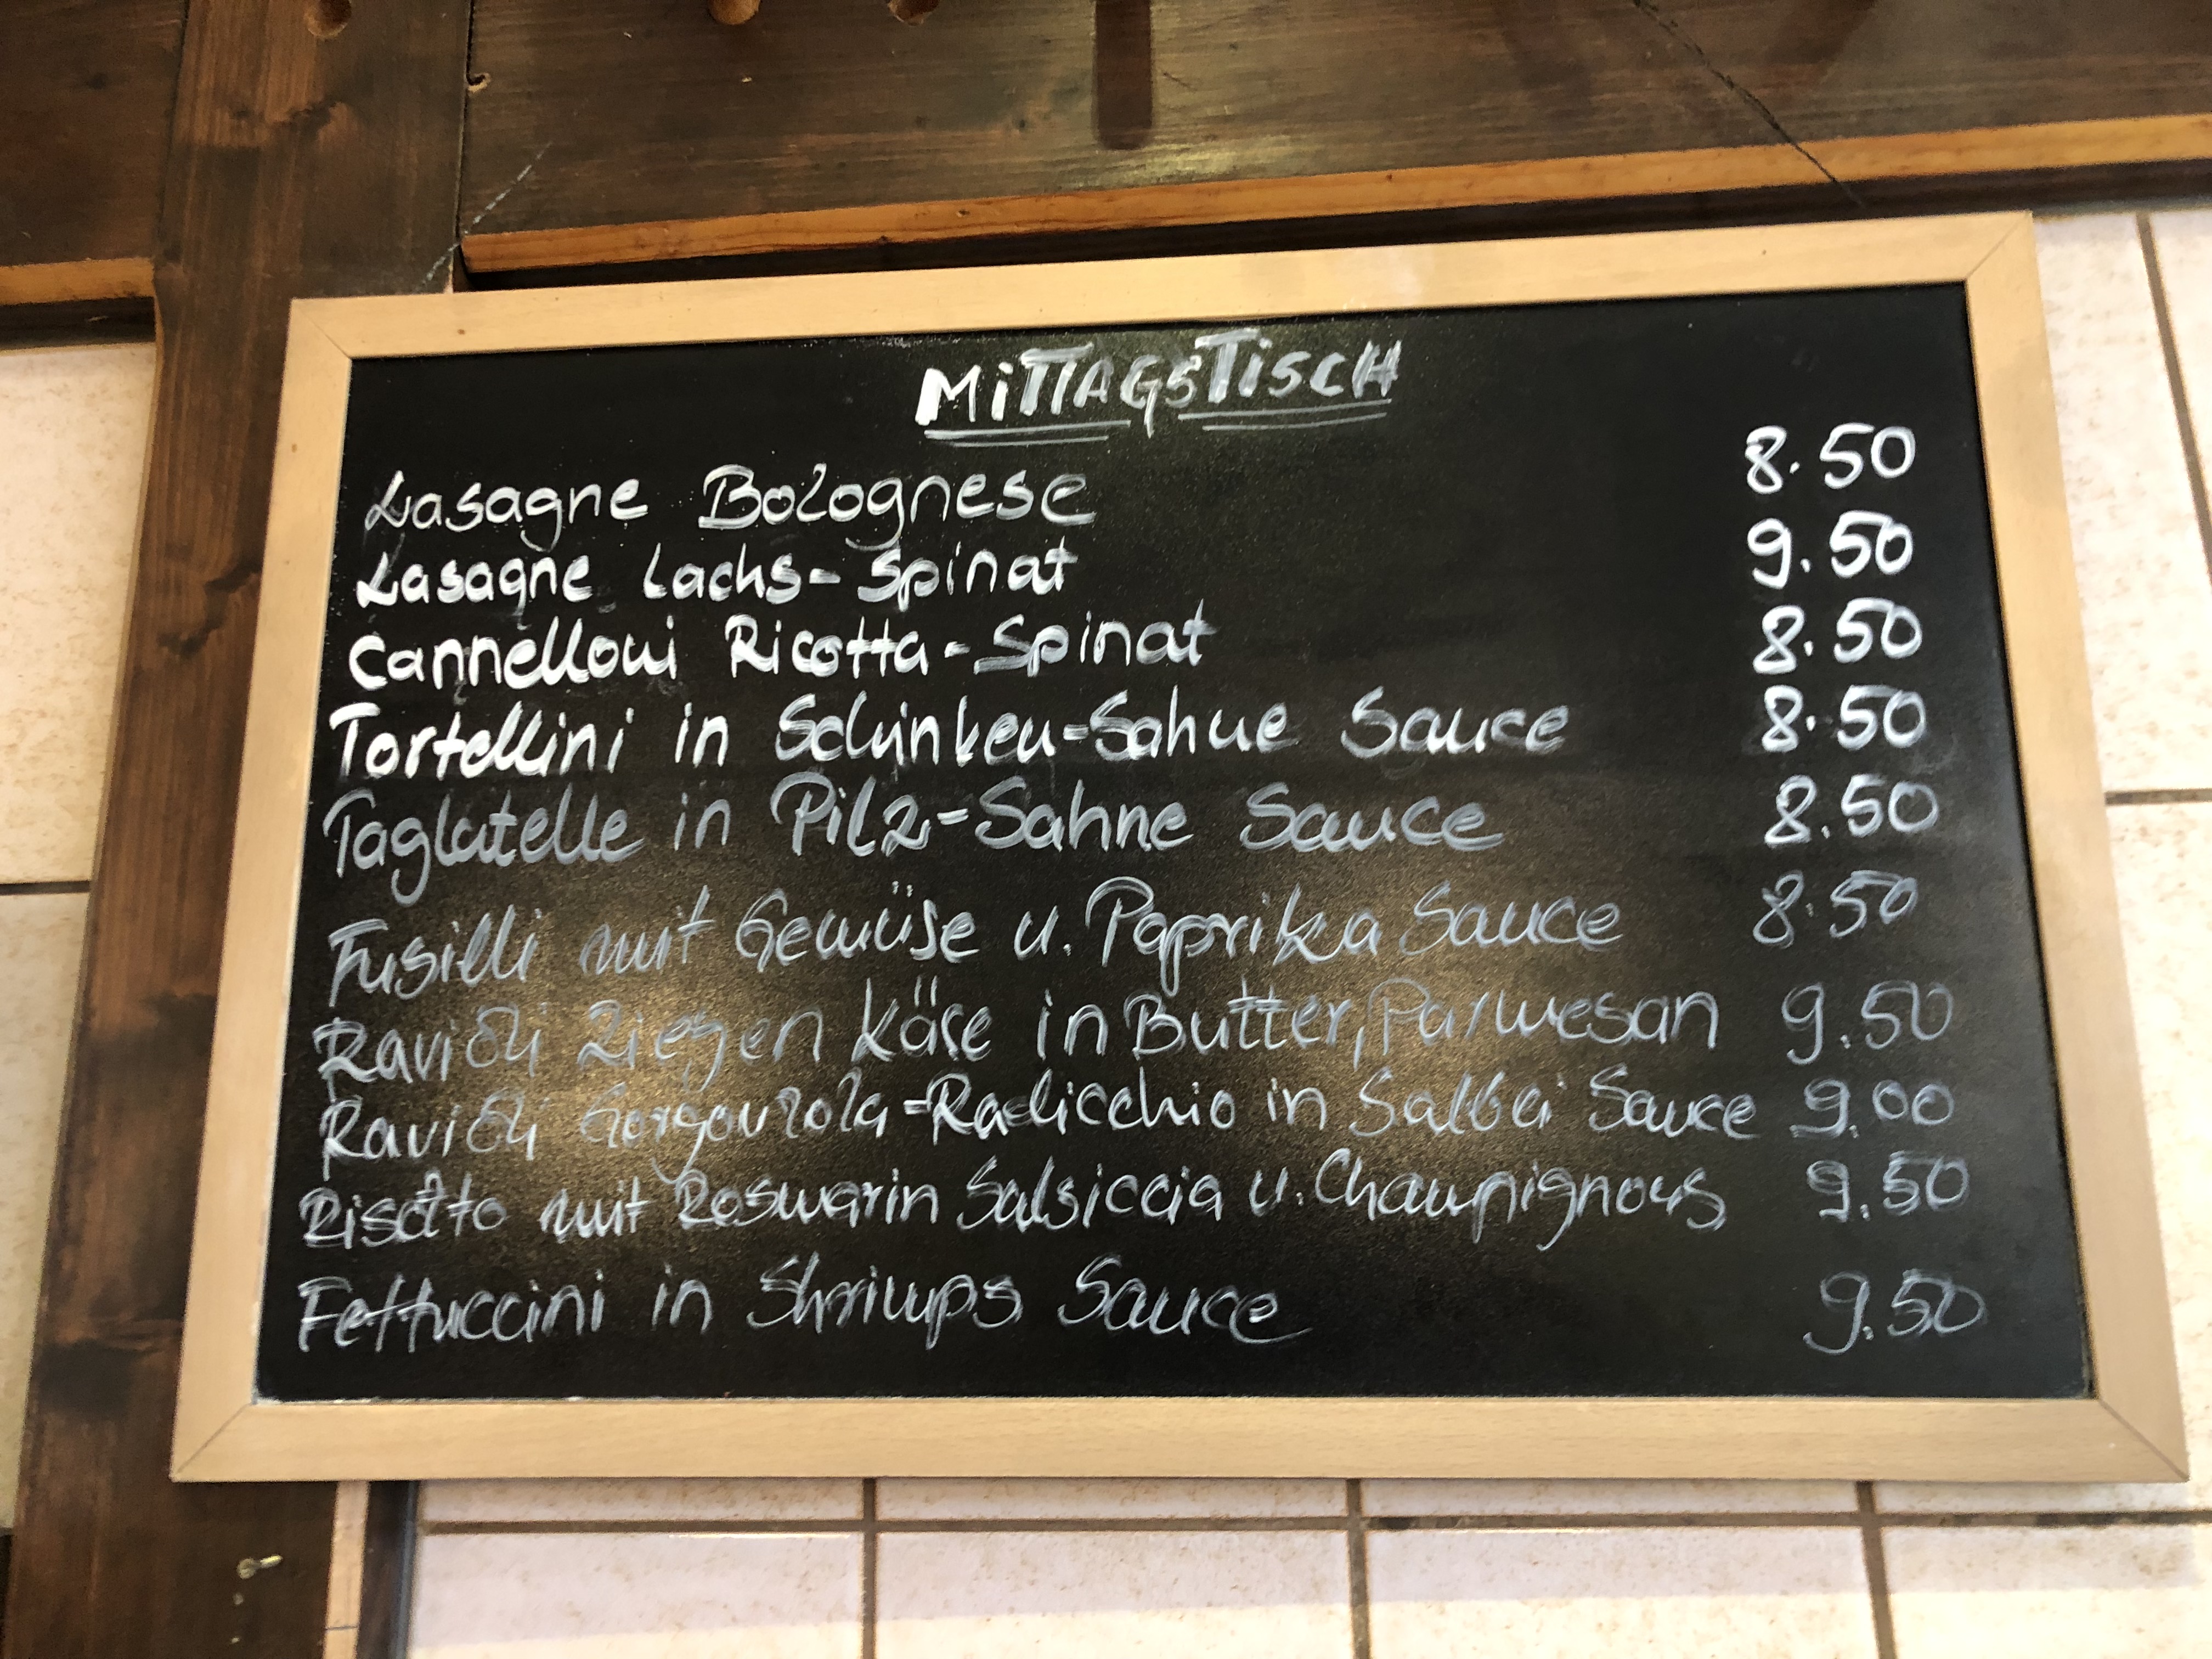 MITTAGSTISCH
Lasagne Bolognese 8.50
Lasagne Lachs-Spinat 9.50
Cannelloni Ricotta-Spinat 8.50
Tortellini in Schinken-Sahne Sauce 8.50
Taglatelle in Pilz-Sahne Sauce 8.50
Fusilli mit Gemüse u. Paprika Sauce 8.50
Ravioli Ziegen Käse in Butter, Parmesan 9.50
Ravioli Gorgonzola-Radicchio in Salbei Sauce 9.00
Risotto mit Rosmarin Salsiccia u. Champignons 9.50
Fettuccini in Shrimps Sauce 9.50